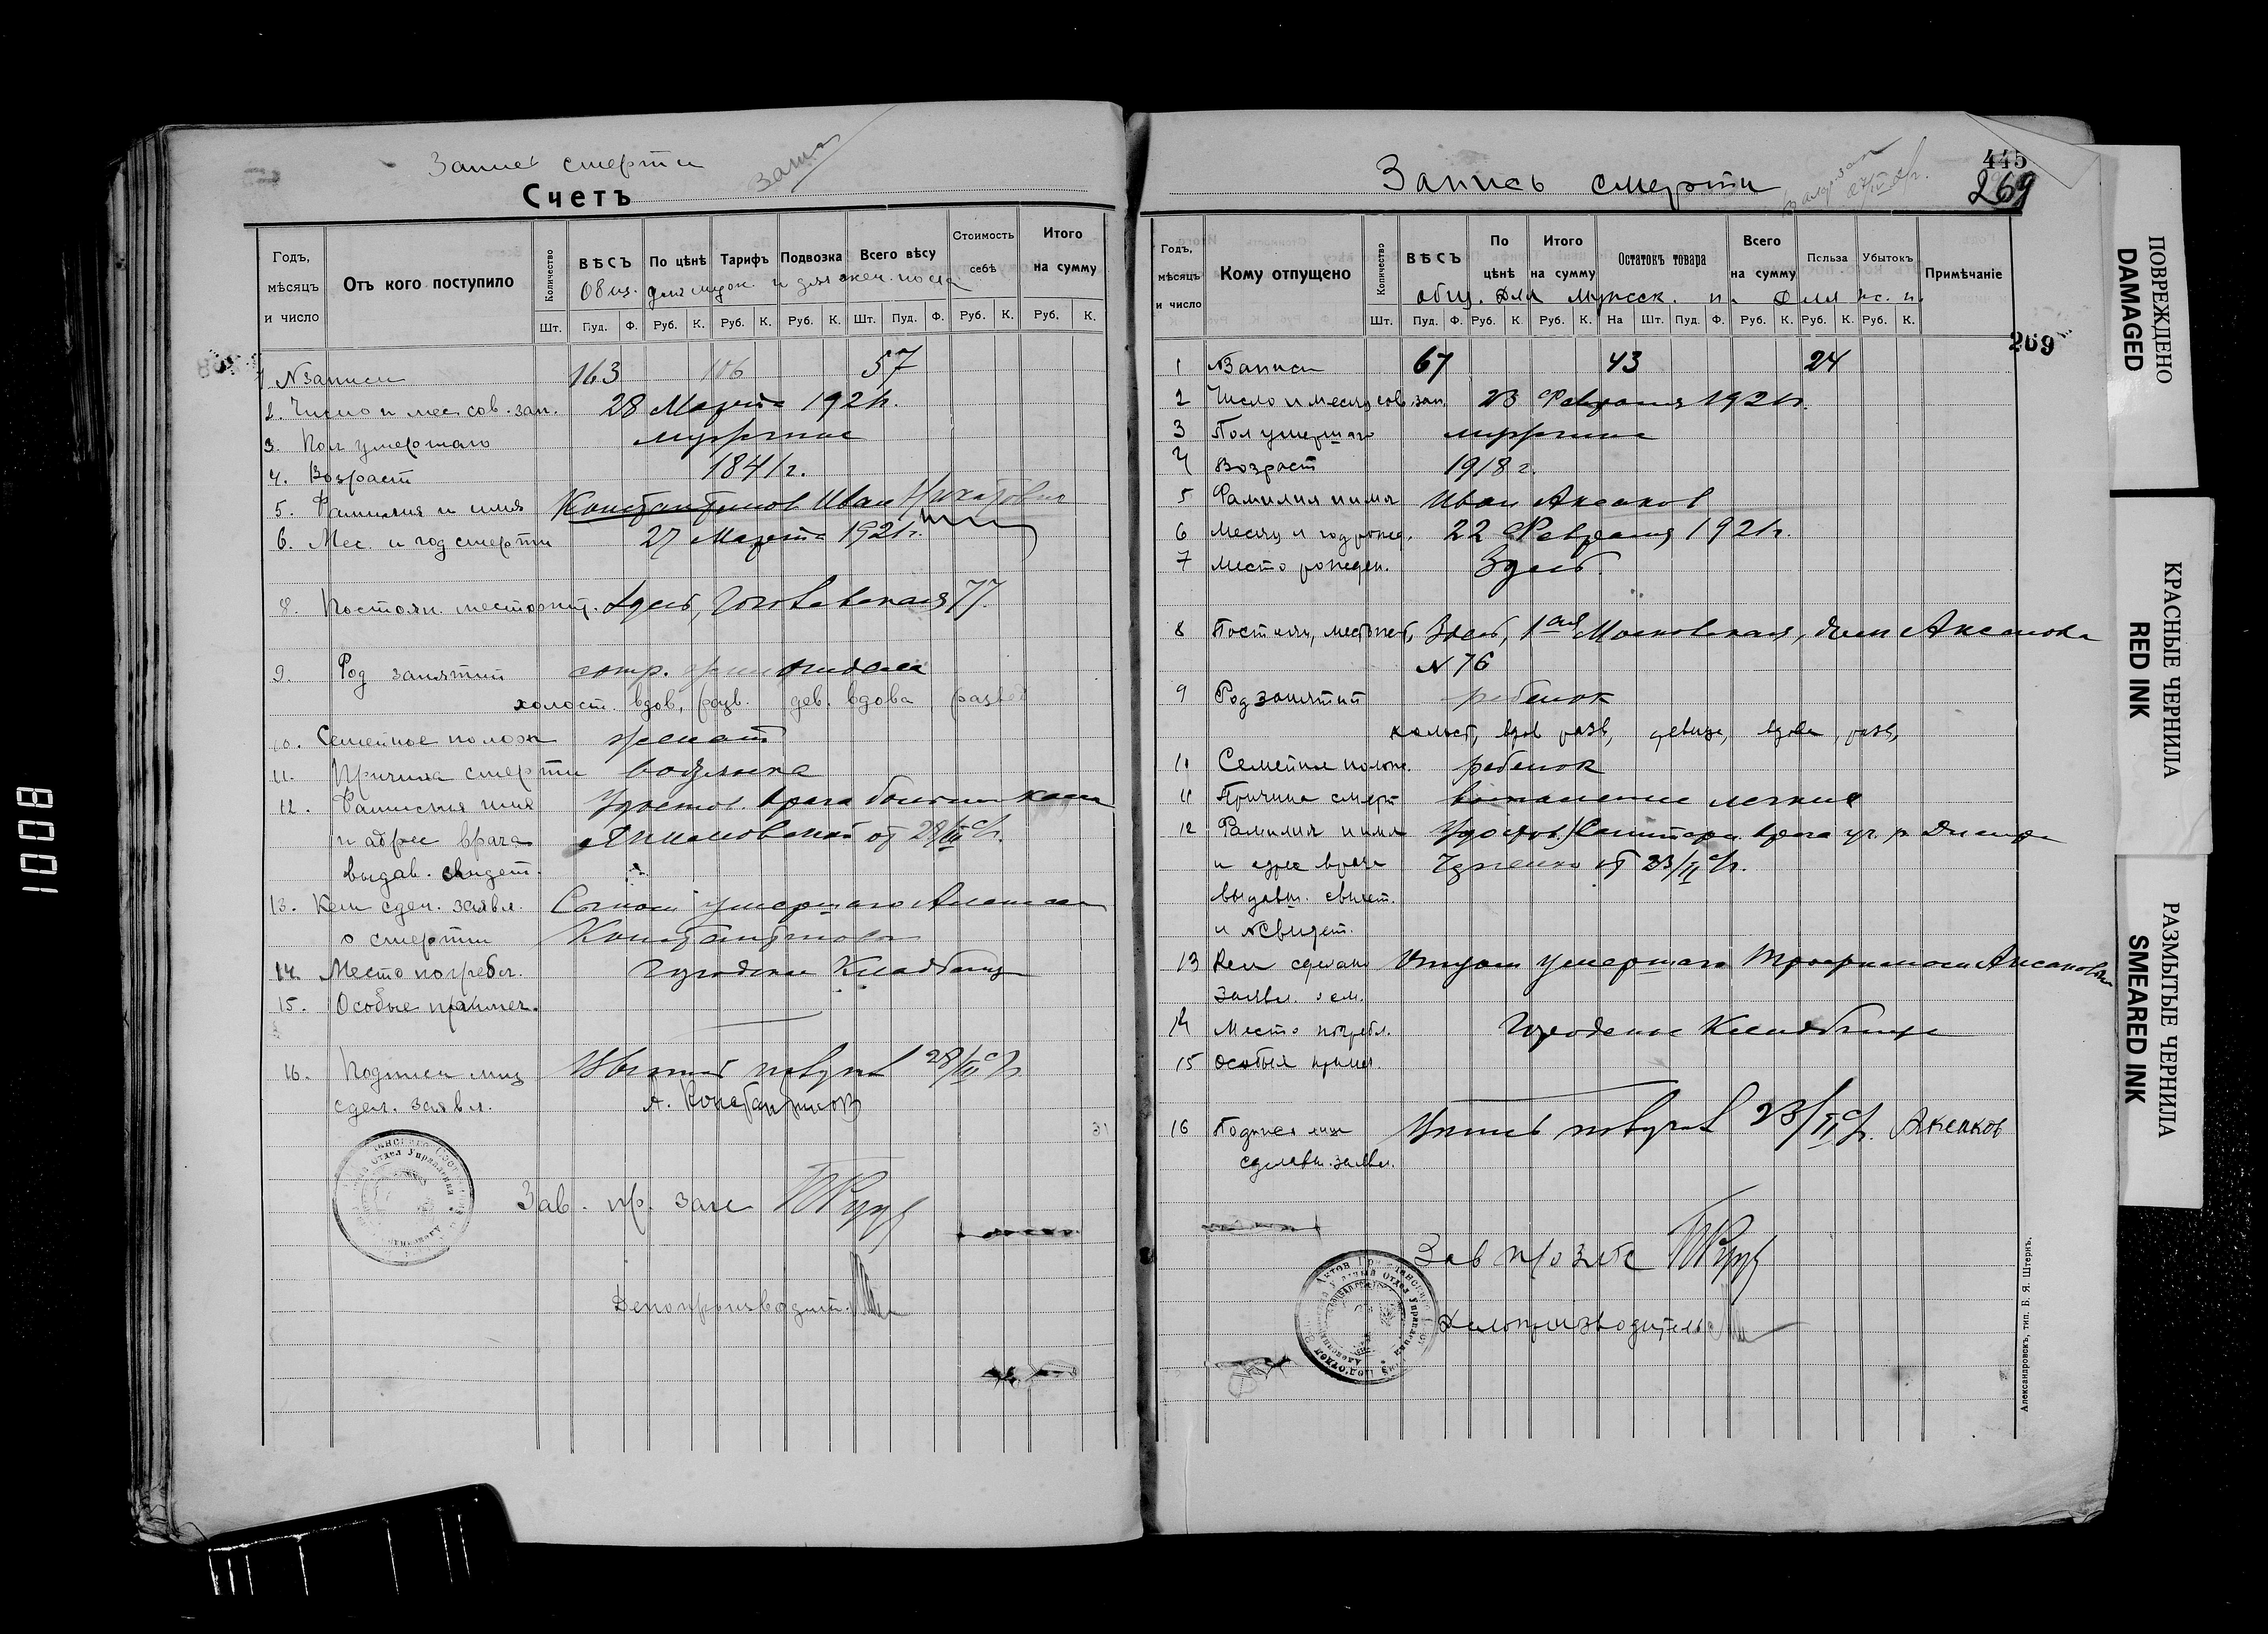 Запись смерти
Счетъ
Годъ, мѣсяцъ и число
Отъ кого поступило
Количество
ВѢСЪ
По цѣнѣ
Тарифъ
Подвозка
Всего вѣсу
Стоимость себѣ
Итого на сумму
Общ. для мужск. и для жен. пола
Шт. Пуд. Ф. Руб. К. Руб. К. Руб. К. Шт. Пуд. Ф. Руб. К. Руб. К.
1 N записи 163 106 57
2. Число и мес сов. зап. 28 Марта 1921г.
3. Пол умершаго мужчина
4. Возраст 1841г.
5. Фамилия и имя Константинов Иван
6. Мес. и год смерти 27 Марта 1921г.
8. Постоян. местожит. Здесь, 77.
9. Род занятий сотр.
холост. вдов, разв. дев. вдова развед
10. Семейное полож женат
11. Причина смерти водянка
12. Фамилия имя Удостов. врача больнич кассы
и адрес врача от 28/III с/г.
выдав. свидет.
13. Кем сдел. заявл. Сыном умершаго
о смерти Константиновым
14. Место погребл. Городское Кладбище
15. Особые примеч.
16. Подписи лиц получил 28/III с/г.
сдел. заявл. А. Константинов
31
Зав. пр. зап
Делопроизводит.
Запись смерти
445
269
Годъ, мѣсяцъ и число
Кому отпущено
Количество
ВѢСЪ
По цѣнѣ
Итого на сумму
Остатокъ товара
Всего на сумму
Польза
Убытокъ
Примѣчаніе
общ. для мужск. п. для ж. п.
Шт. Пуд. Ф. Руб. К. Руб. К. На Шт. Пуд. Ф. Руб. К. Руб. К. Руб. К.
269
1 N Записи 67 43 24
2 Число и месяц сов. зап. 23 Февраля 1921г.
3 Пол умершаго мужчина
4 Возраст 1918 г.
5 Фамилия и имя Иван Аксаков
6 Месяц и год рожд. 22 Февраля 1921г.
7 Место рожден. Здесь.
8 Постоян. местожит. Здесь, 1ая Московская, дом Аксакова
N 76
9 Род занятий ребенок
холост, вдов разв, девица, вдова, разв,
10 Семейное полож. ребенок
11 Причина смерт воспаление легких
12 Фамилия и имя Удостов. Санитарн. врача
и адрес врача от 23/II с/г.
выдавш. свидет.
и N свидет.
13 Кем сделано Отцом умершаго Аксаковым
Заявл. о см.
14 Место погребл. Городское Кладбище
15 Особыя примеч.
16 Подписи лиц получил 23/II с/г. Аксаков
сделавш. заявл.
Зав п/о зап
Делопроизводитель
Александровскъ, тип. В. Я. Штернъ.
ПОВРЕЖДЕНО
DAMAGED
КРАСНЫЕ ЧЕРНИЛА
RED INK
РАЗМЫТЫЕ ЧЕРНИЛА
SMEARED INK
1008